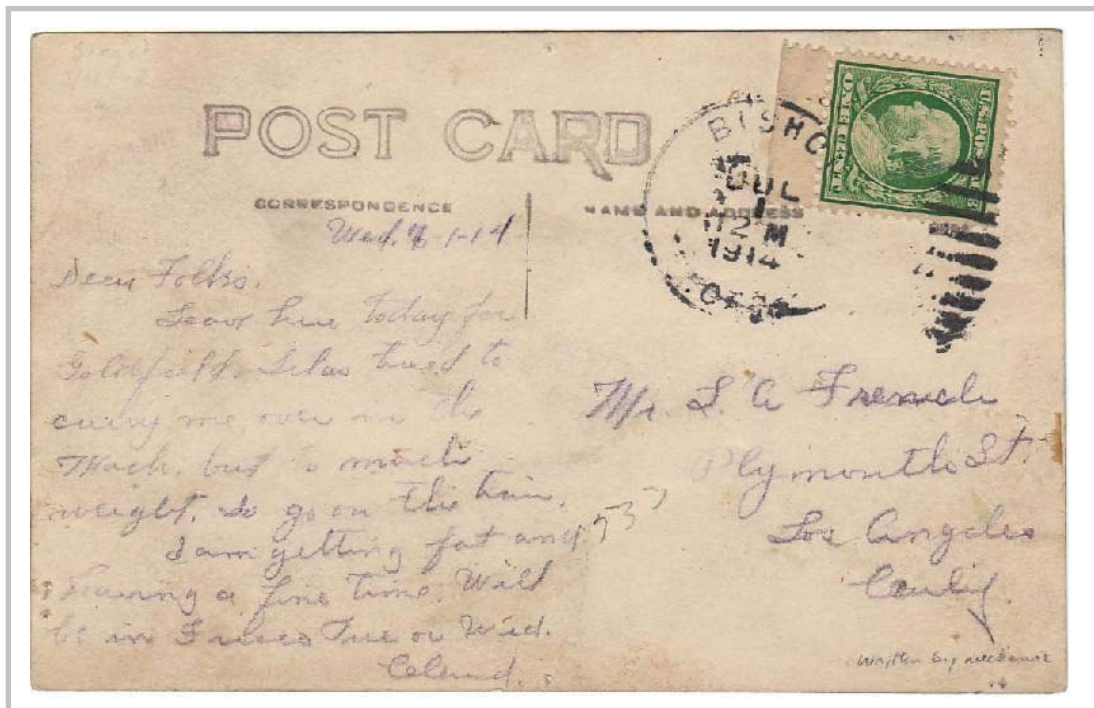 POST CARD
CORRESPONDENCE
NAME AND ADDRESS
BISHO
JUL
1
12 M
1914
U.S. POSTAGE
ONE CENT
Wed. 7-1-14
Dear Folks.
Leave here Today for
Goldfield. Silas tried to
carry me over in the
Mach. but to much
weight. So go on the train.
I am getting fat and
Having a fine time. Will
be in Frisco Tue or Wed.
Mr. L. A French
Plymouth St.
Los Angeles
Written by